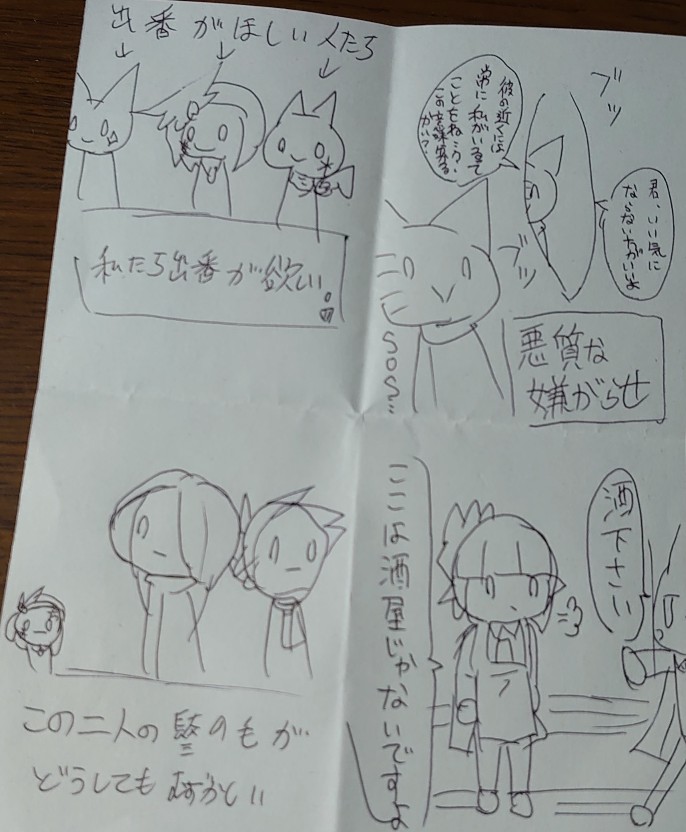 出番がほしい人たち
私たち出番が欲しい。
ブッ
君、いい気に
ならない方がいいよ
彼の近くには
常に私がいるて
ことをね
ブッ
SOS…
悪質な
嫌がらせ
この二人の
のもが
どうしても
酒下さい
ここは酒屋じゃないですよ